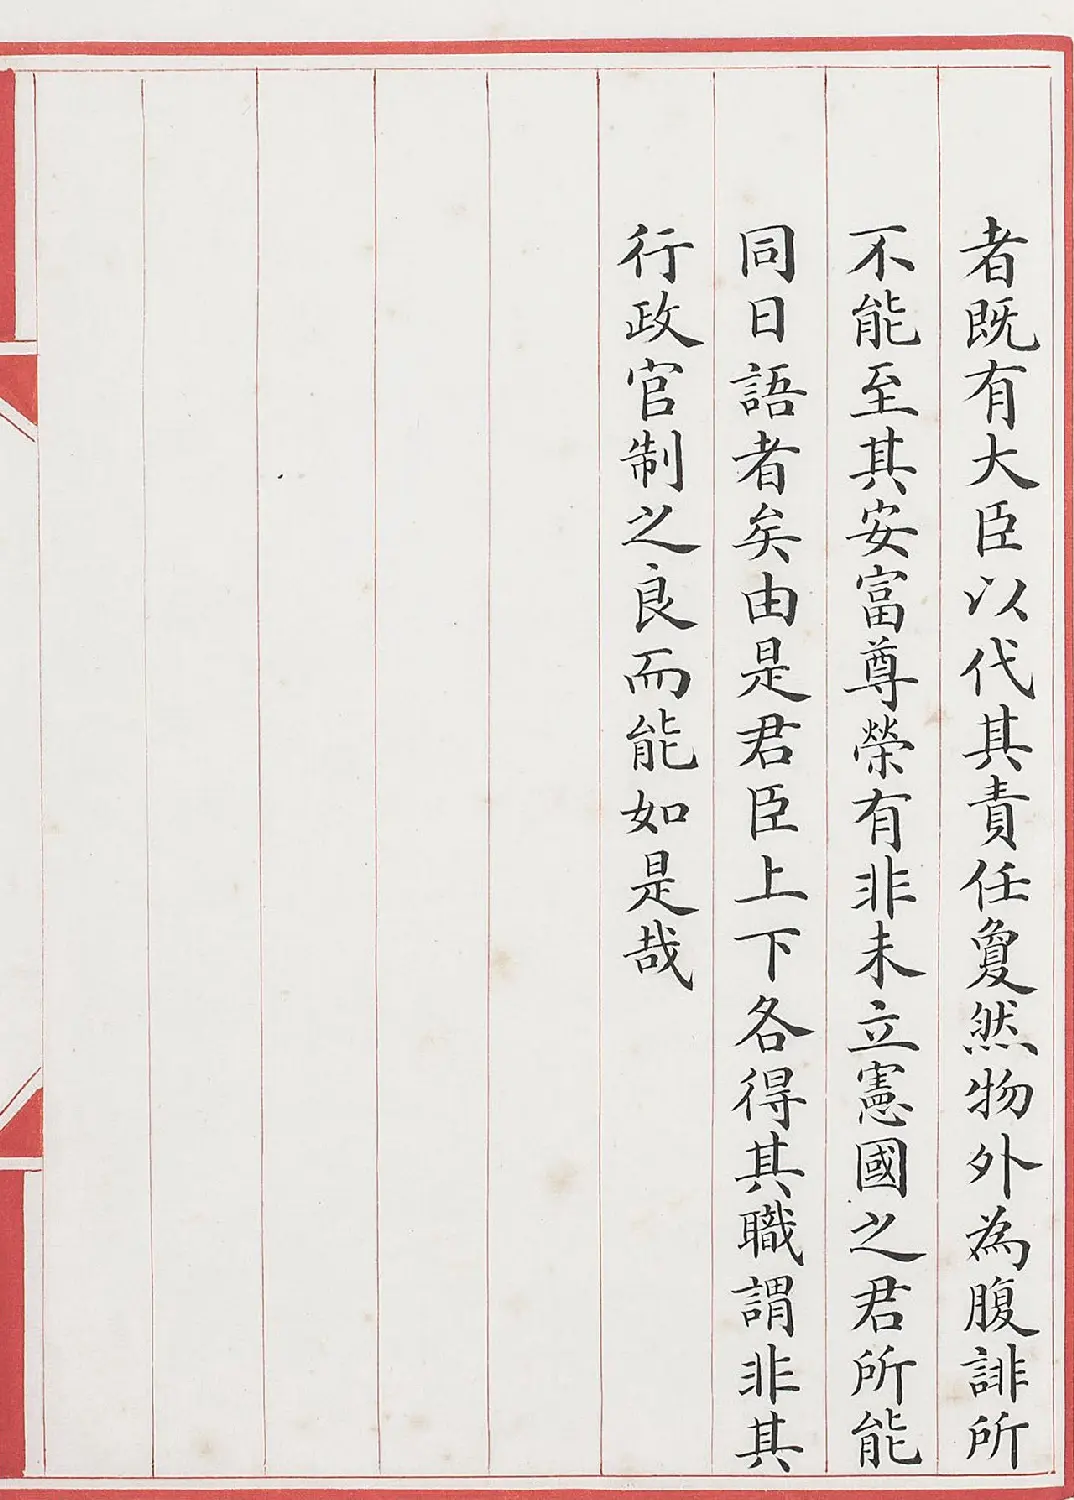 者既有大臣以代其責任敻然物外為腹誹所
不能至其安富尊榮有非未立憲國之君所能
同日語者矣由是君臣上下各得其職謂非其
行政官制之良而能如是哉